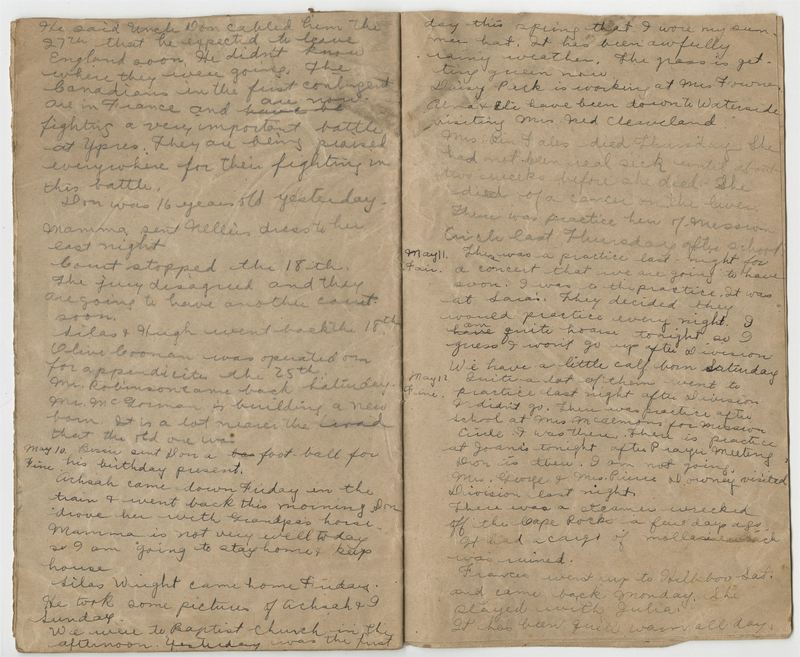 He said Uncle Don cabled him the
27th that he expected to leave
England soon. He didn't know
where they were going. The
Canadians in the first contingent
are now
are in France and have be
fighting a very important battle
at Ypres. They are being praised
everywhere for their fighting in
this battle.
Don was 16 years old yesterday.
Mamma sent Nellie's dress to her
last night
Court stopped the 18th.
The jury disagreed and they
are going to have another court
soon.
Silas & Hugh went back the 18th
Olive Coonan was operated on
for appendicitis the 25th.
Mr. Robinson came back Saturday.
Mr. McGorman is building a new
barn. It is a lot nearer the road
that the old one was
May 10. Bessie sent Don a foot ball for
Fine his birthday present.
Achsah came down Friday in the
train & went back this morning Don
drove her with Grandpa's horse.
Mamma is not very well today
so I am going to stay home & keep
house
Silas Wright came home Friday.
He took some pictures of Achsah & I
Sunday.
We were to Baptist Church in the
afternoon. Yesterday was the first
day this spring that I wore my sum-
mer hat. It has been awfully
rainy weather. The grass is get-
ting green now.
Daisy Peck is working at Mrs Towne
Alma & have been down to Waterside
visiting Mrs. Ned Cleveland
Mrs. died Thursday. She
had not been real sick until about
two weeks before she died. She
died of a cancer on the liver.
There was practice here of Mission
Circle last Thursday after school
May 11. There was a practice last night for
Fair. a concert that we are going to have
soon. I was to the practice. It was
at Sara's. They decided they
would practice every night. I
am
have quite hoarse tonight so I
guess I won't go up after Division
We have a little calf born Saturday
May 12 Quite a lot of them went to
Fine. practice last night after Division
I didn't go. There was practice after
school at Mrs for Mission
Circle I was there. There is practice
at Joan's tonight after Prayer Meeting
Don is there. I am not going.
Mrs. George & Mrs. Pierce Downey visited
Division last night.
There was a steamer wrecked
off the Cape Rocks a few days ago.
It had a cargo of molasses
was ruined.
Frances went up to Hillsboro Sat.
and came back Monday. She
stayed with Julia.
It has been quite warm all day.